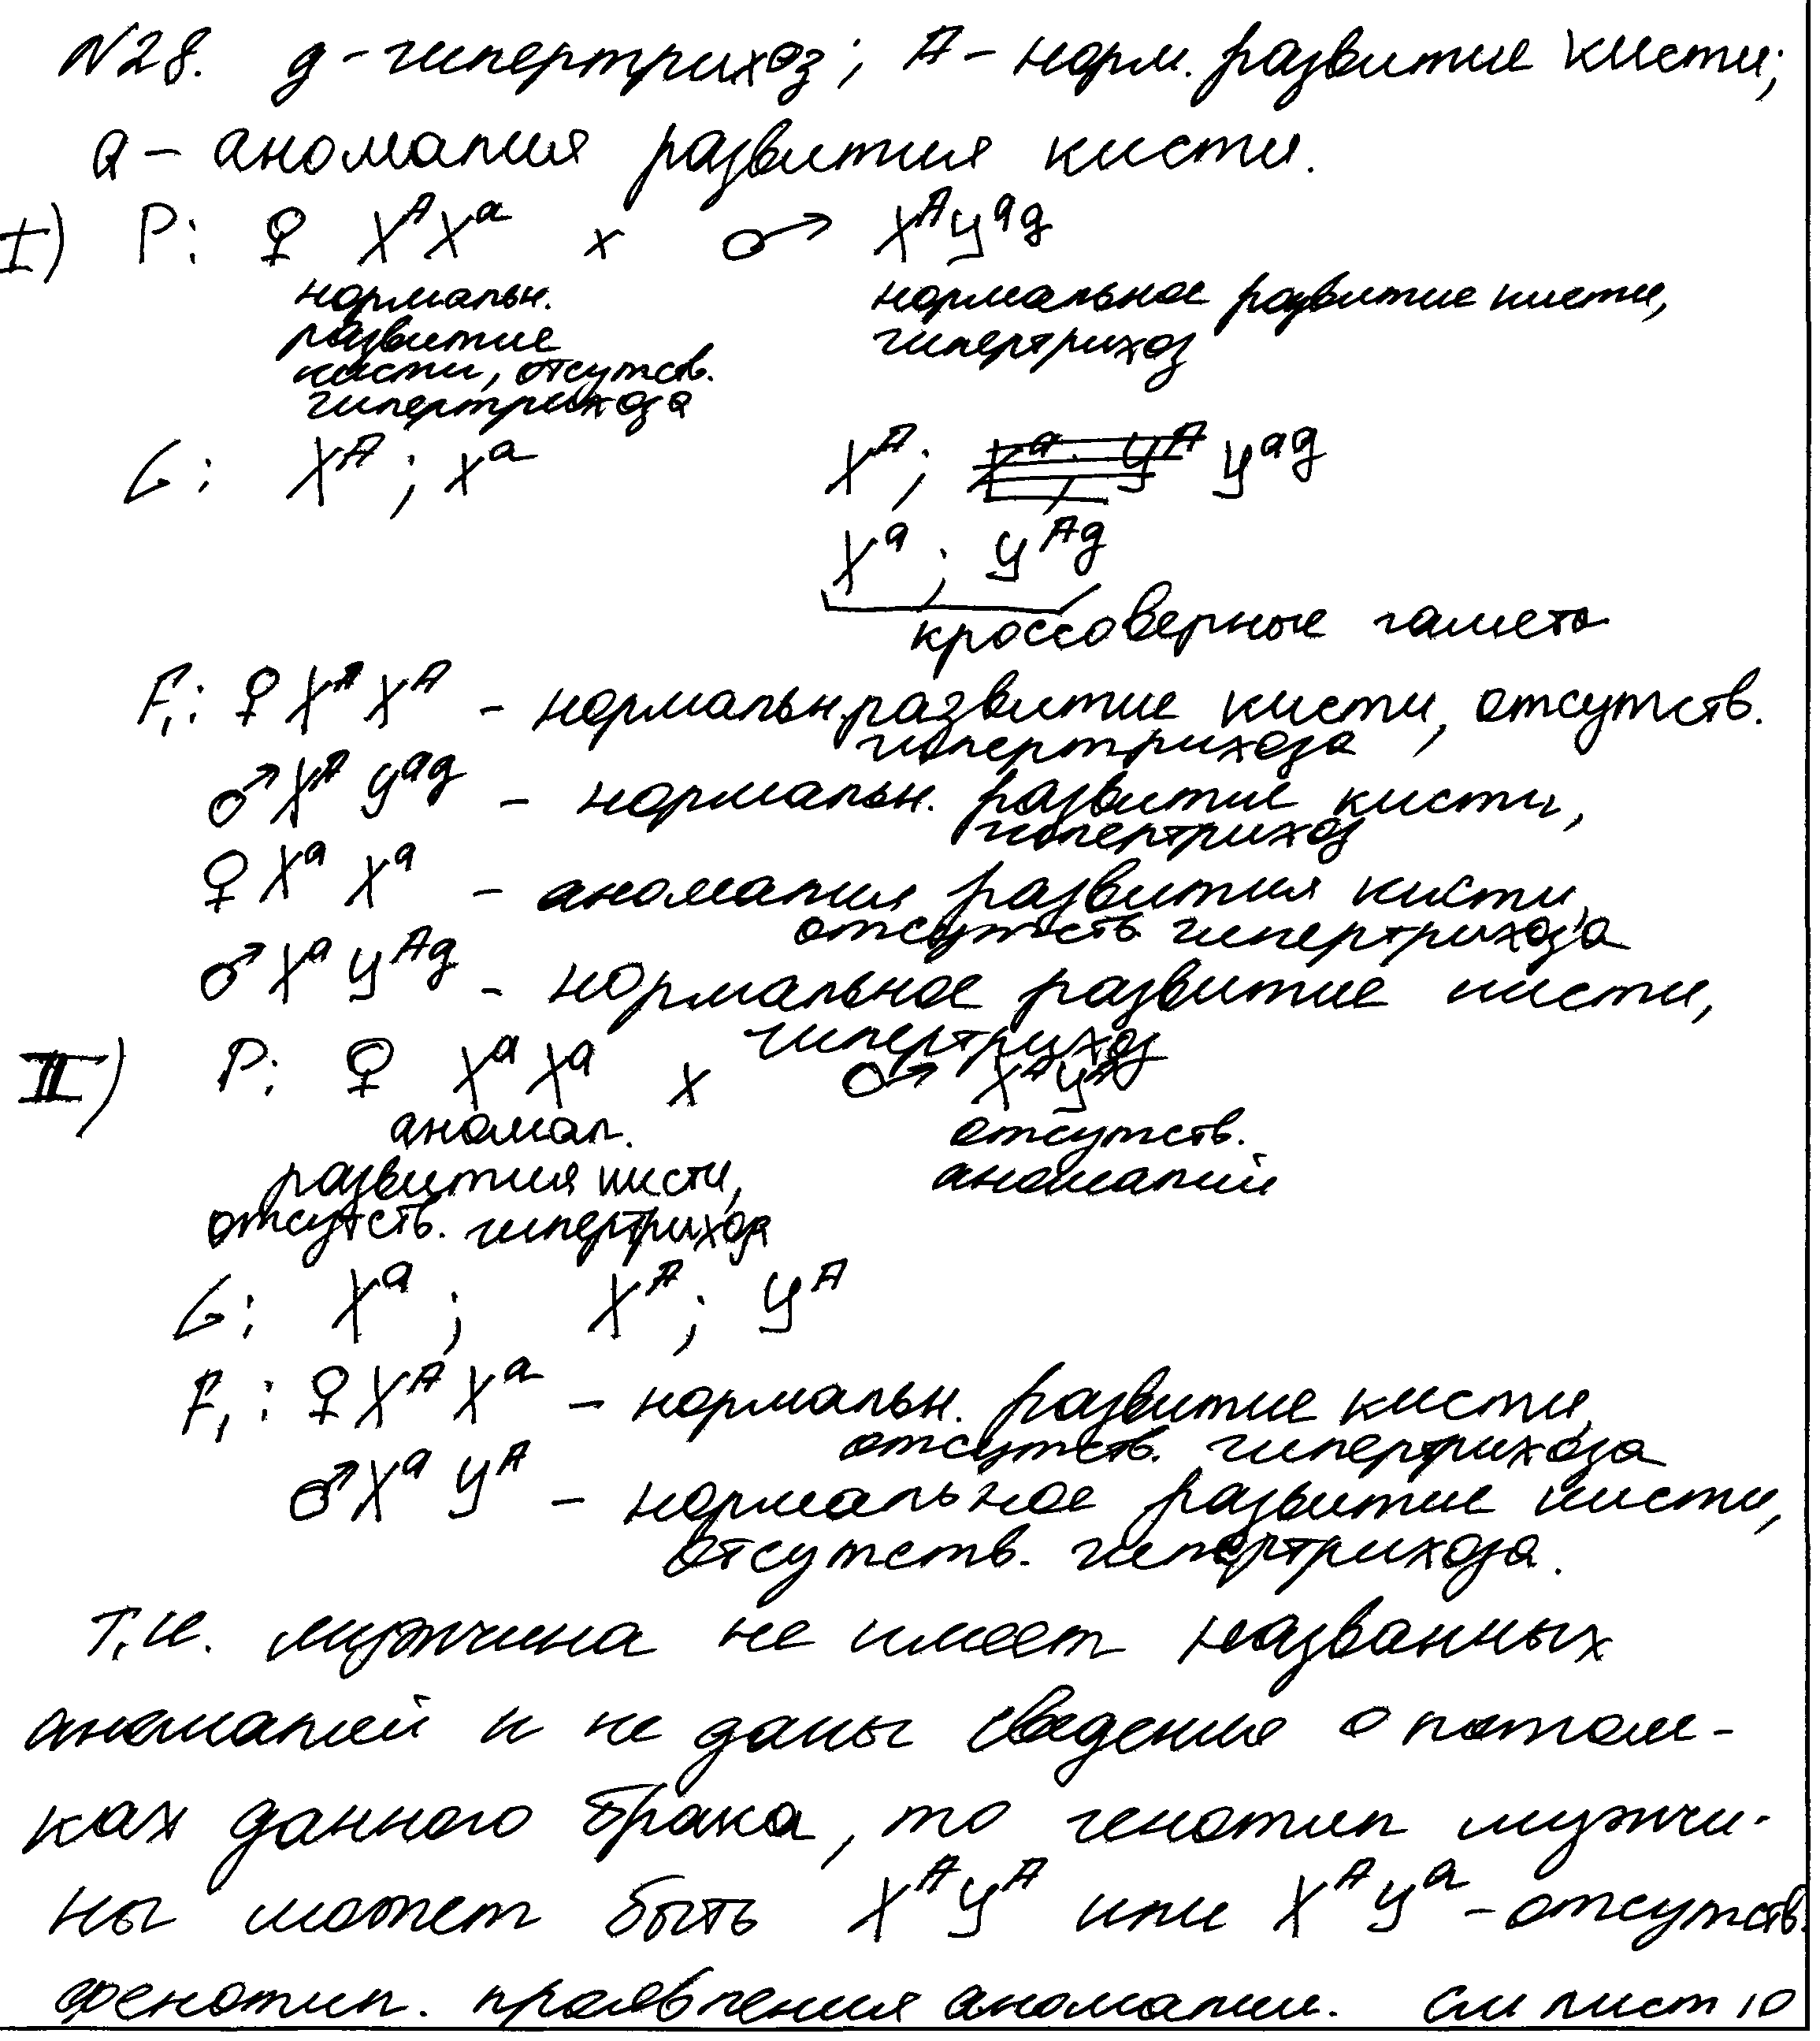 N28. g - гипертрихоз; A - норм. развитие кисти;
a - аномалия развития кисти.
I) P: ♀ XᴬXᵃ x ♂ XᴬYᵃᵍ
нормальн. развитие кисти, отсутств. гипертрихоза
нормальное развитие кисти, гипертрихоз
G: Xᴬ; Xᵃ Xᴬ; Yᵃᵍ
Xᵃ; Yᴬᵍ
кроссоверные гаметы
F₁: ♀ Xᴬ Xᴬ - нормальн. развитие кисти, отсутств.
гипертрихоза
♂ Xᴬ Yᵃᵍ - нормальн. развитие кисти,
гипертрихоз
♀ Xᵃ Xᵃ - аномалия развития кисти,
отсутств. гипертрихоза
♂ Xᵃ Yᴬᵍ - нормальное развитие кисти,
гипертрихоз
II) P: ♀ XᵃXᵃ x ♂ XᴬYᴬ
аномал. развития кисти, отсутств. гипертрихоза
отсутств. аномалий
G: Xᵃ; Xᴬ; Yᴬ
F₁: ♀ Xᴬ Xᵃ - нормальн. развитие кисти,
отсутств. гипертрихоза
♂ Xᵃ Yᴬ - нормальное развитие кисти,
отсутств. гипертрихоза.
Т.к. мужчина не имеет названных
аномалий и не даны сведения о потом-
ках данного брака, то генотип мужчи-
ны может быть XᴬYᴬ или XᴬYᵃ - отсутств.
фенотип. проявления аномалии. см лист 10